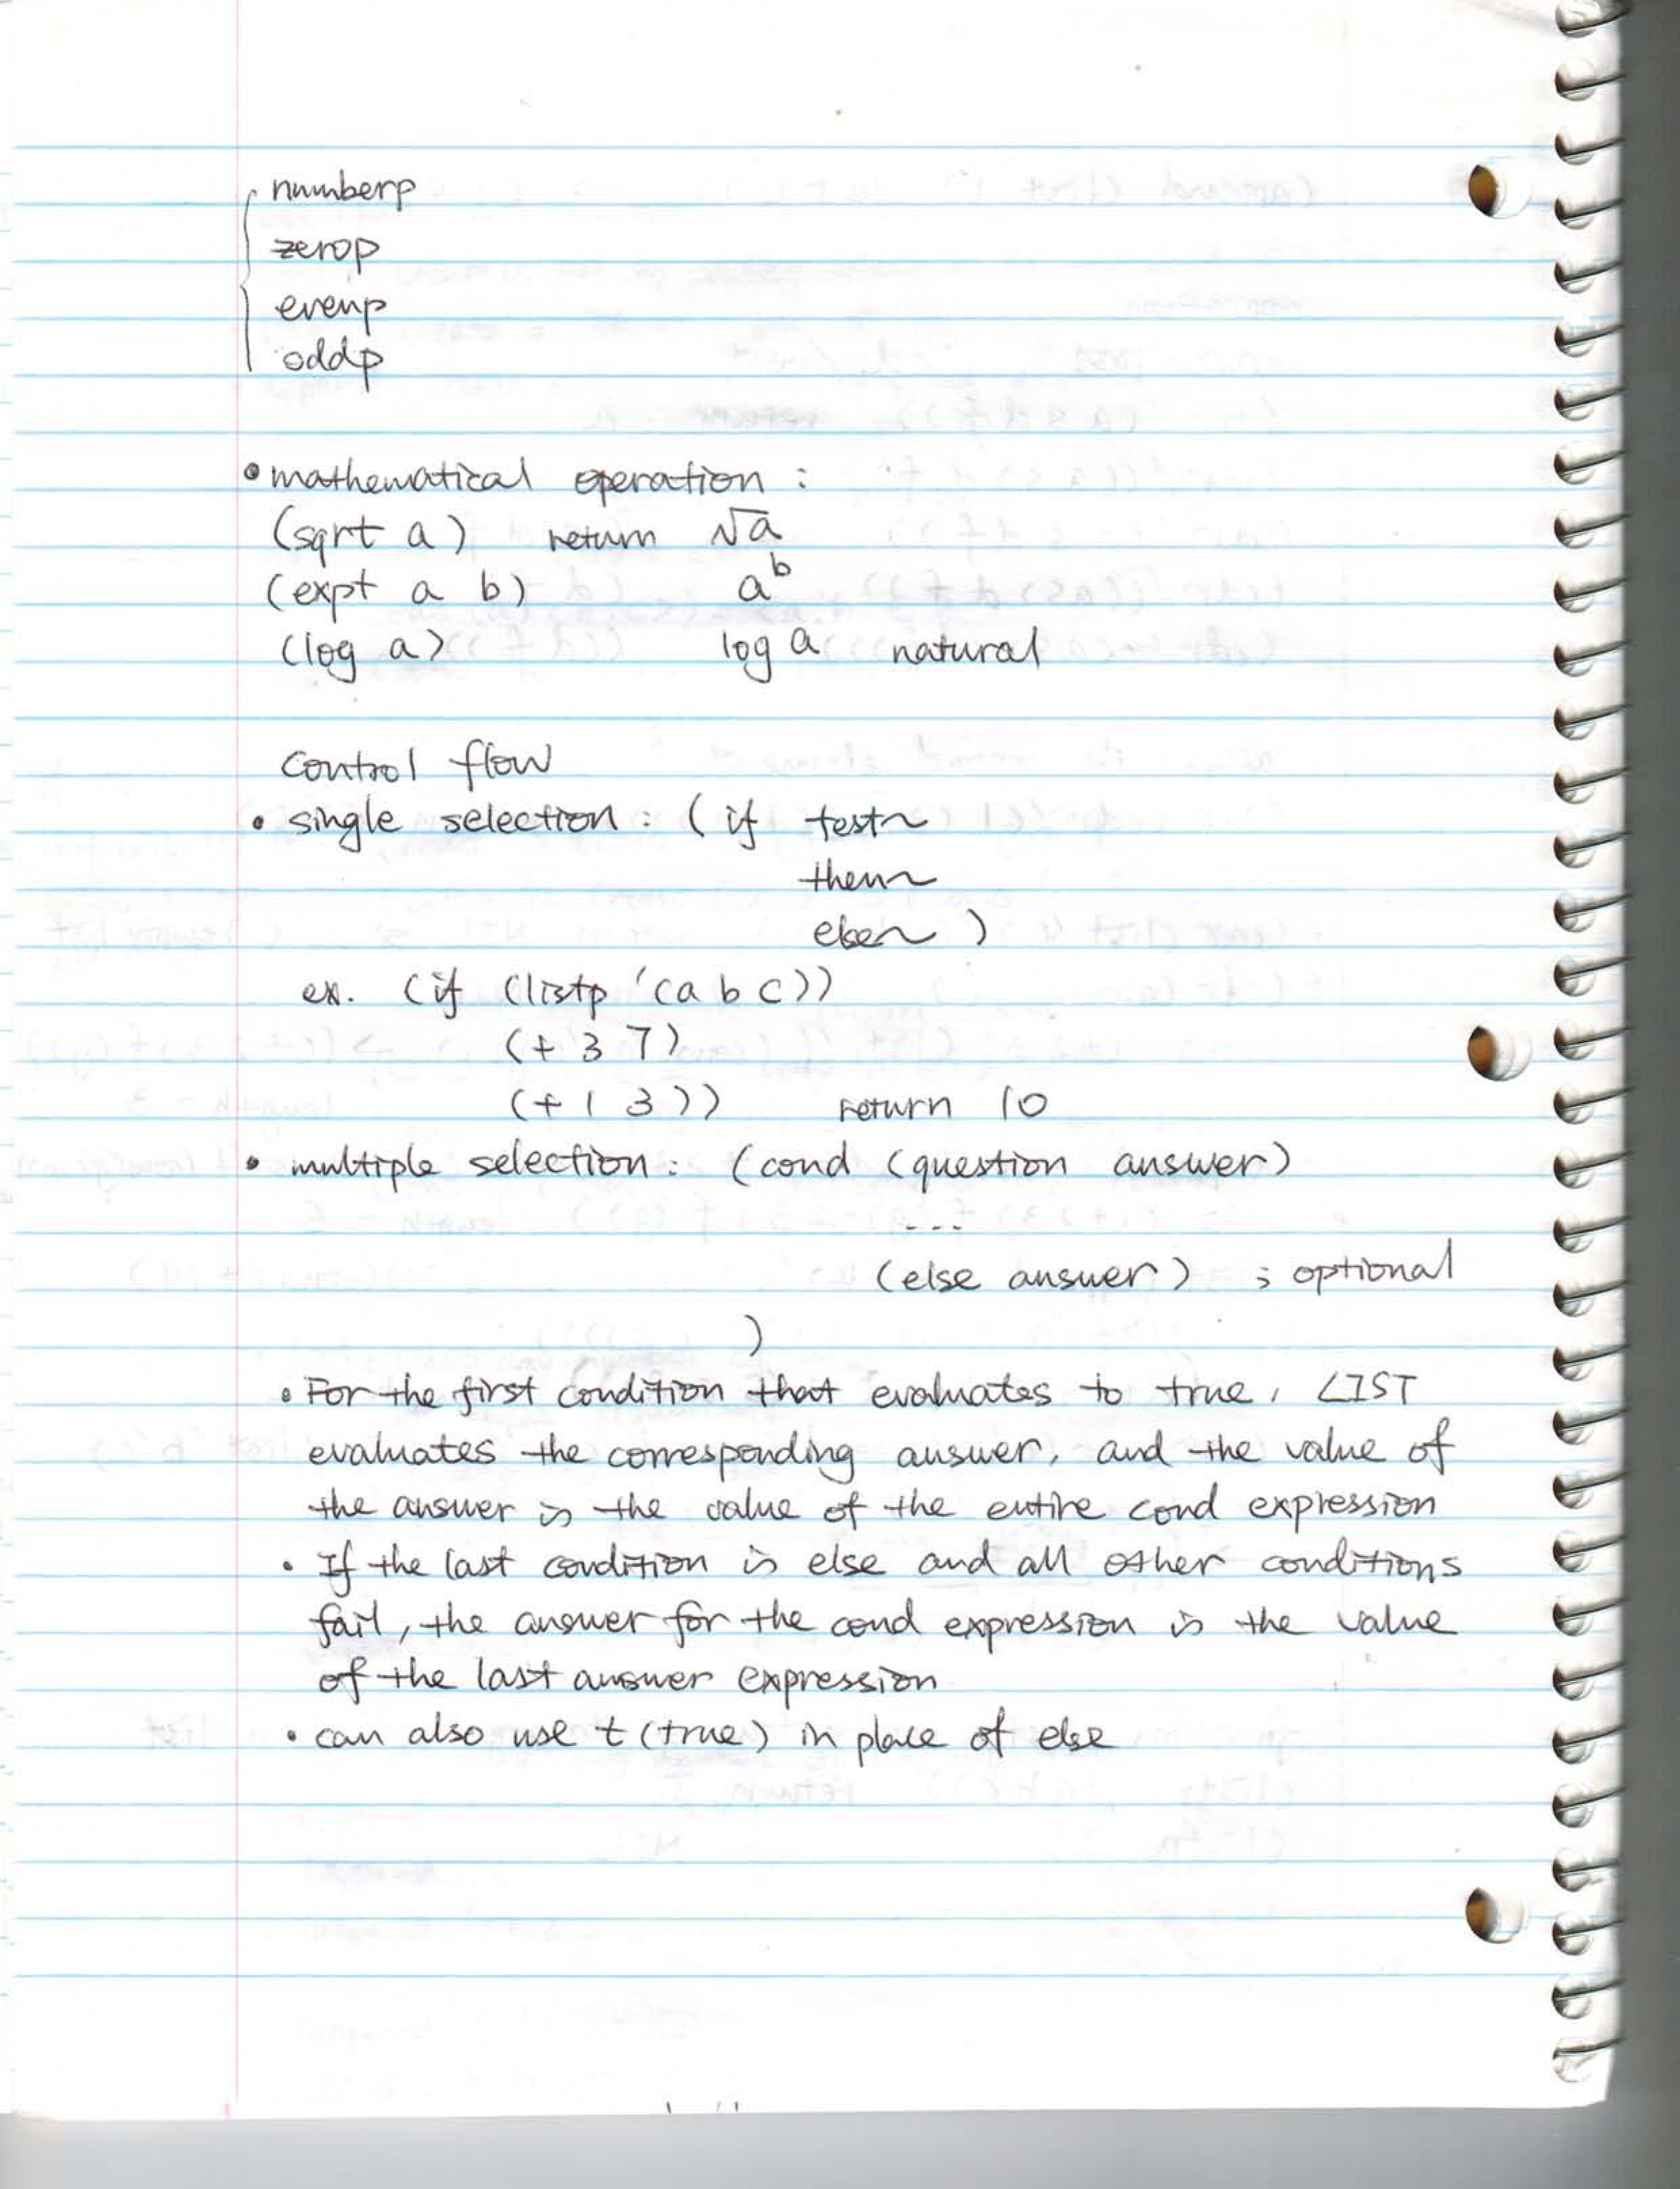 numberp
zerop
evenp
oddp
• mathematical operation :
(sqrt a) return √a
(expt a b) a^b
(log a) log a natural
control flow
• single selection : ( if test~
then~
else~ )
ex. (if (listp '(a b c))
(+ 3 7)
(+ 1 3)) return 10
• multiple selection : (cond (question answer)
---
(else answer) ; optional
)
• For the first condition that evaluates to true, LIST
evaluates the corresponding answer, and the value of
the answer is the value of the entire cond expression
• If the last condition is else and all other conditions
fail, the answer for the cond expression is the value
of the last answer expression
• can also use t (true) in place of else